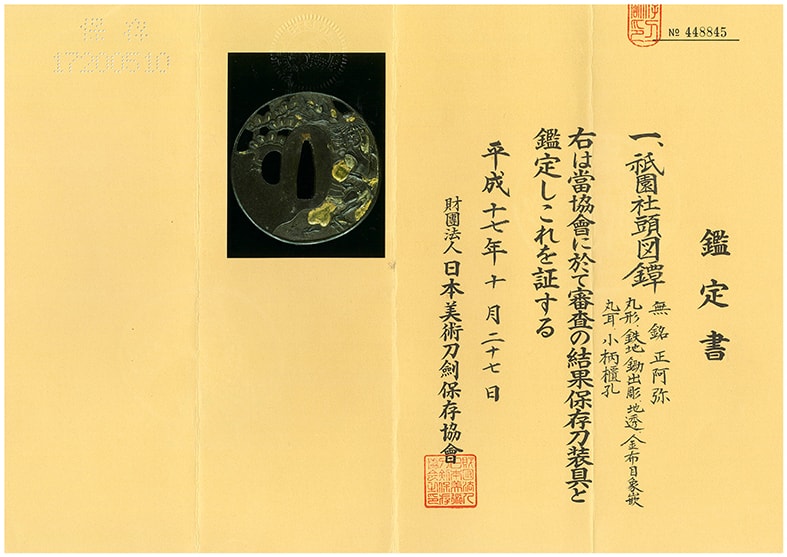 № 448845
鑑定書
一、祇園社頭図鐔
無銘 正阿弥
丸形、鉄地、鋤出彫、地透、金布目象嵌
丸耳、小柄櫃孔
右は當協會に於て審査の結果保存刀装具と
鑑定しこれを証する
平成十七年十月二十七日
財團法人 日本美術刀劍保存協會
保存
17200510